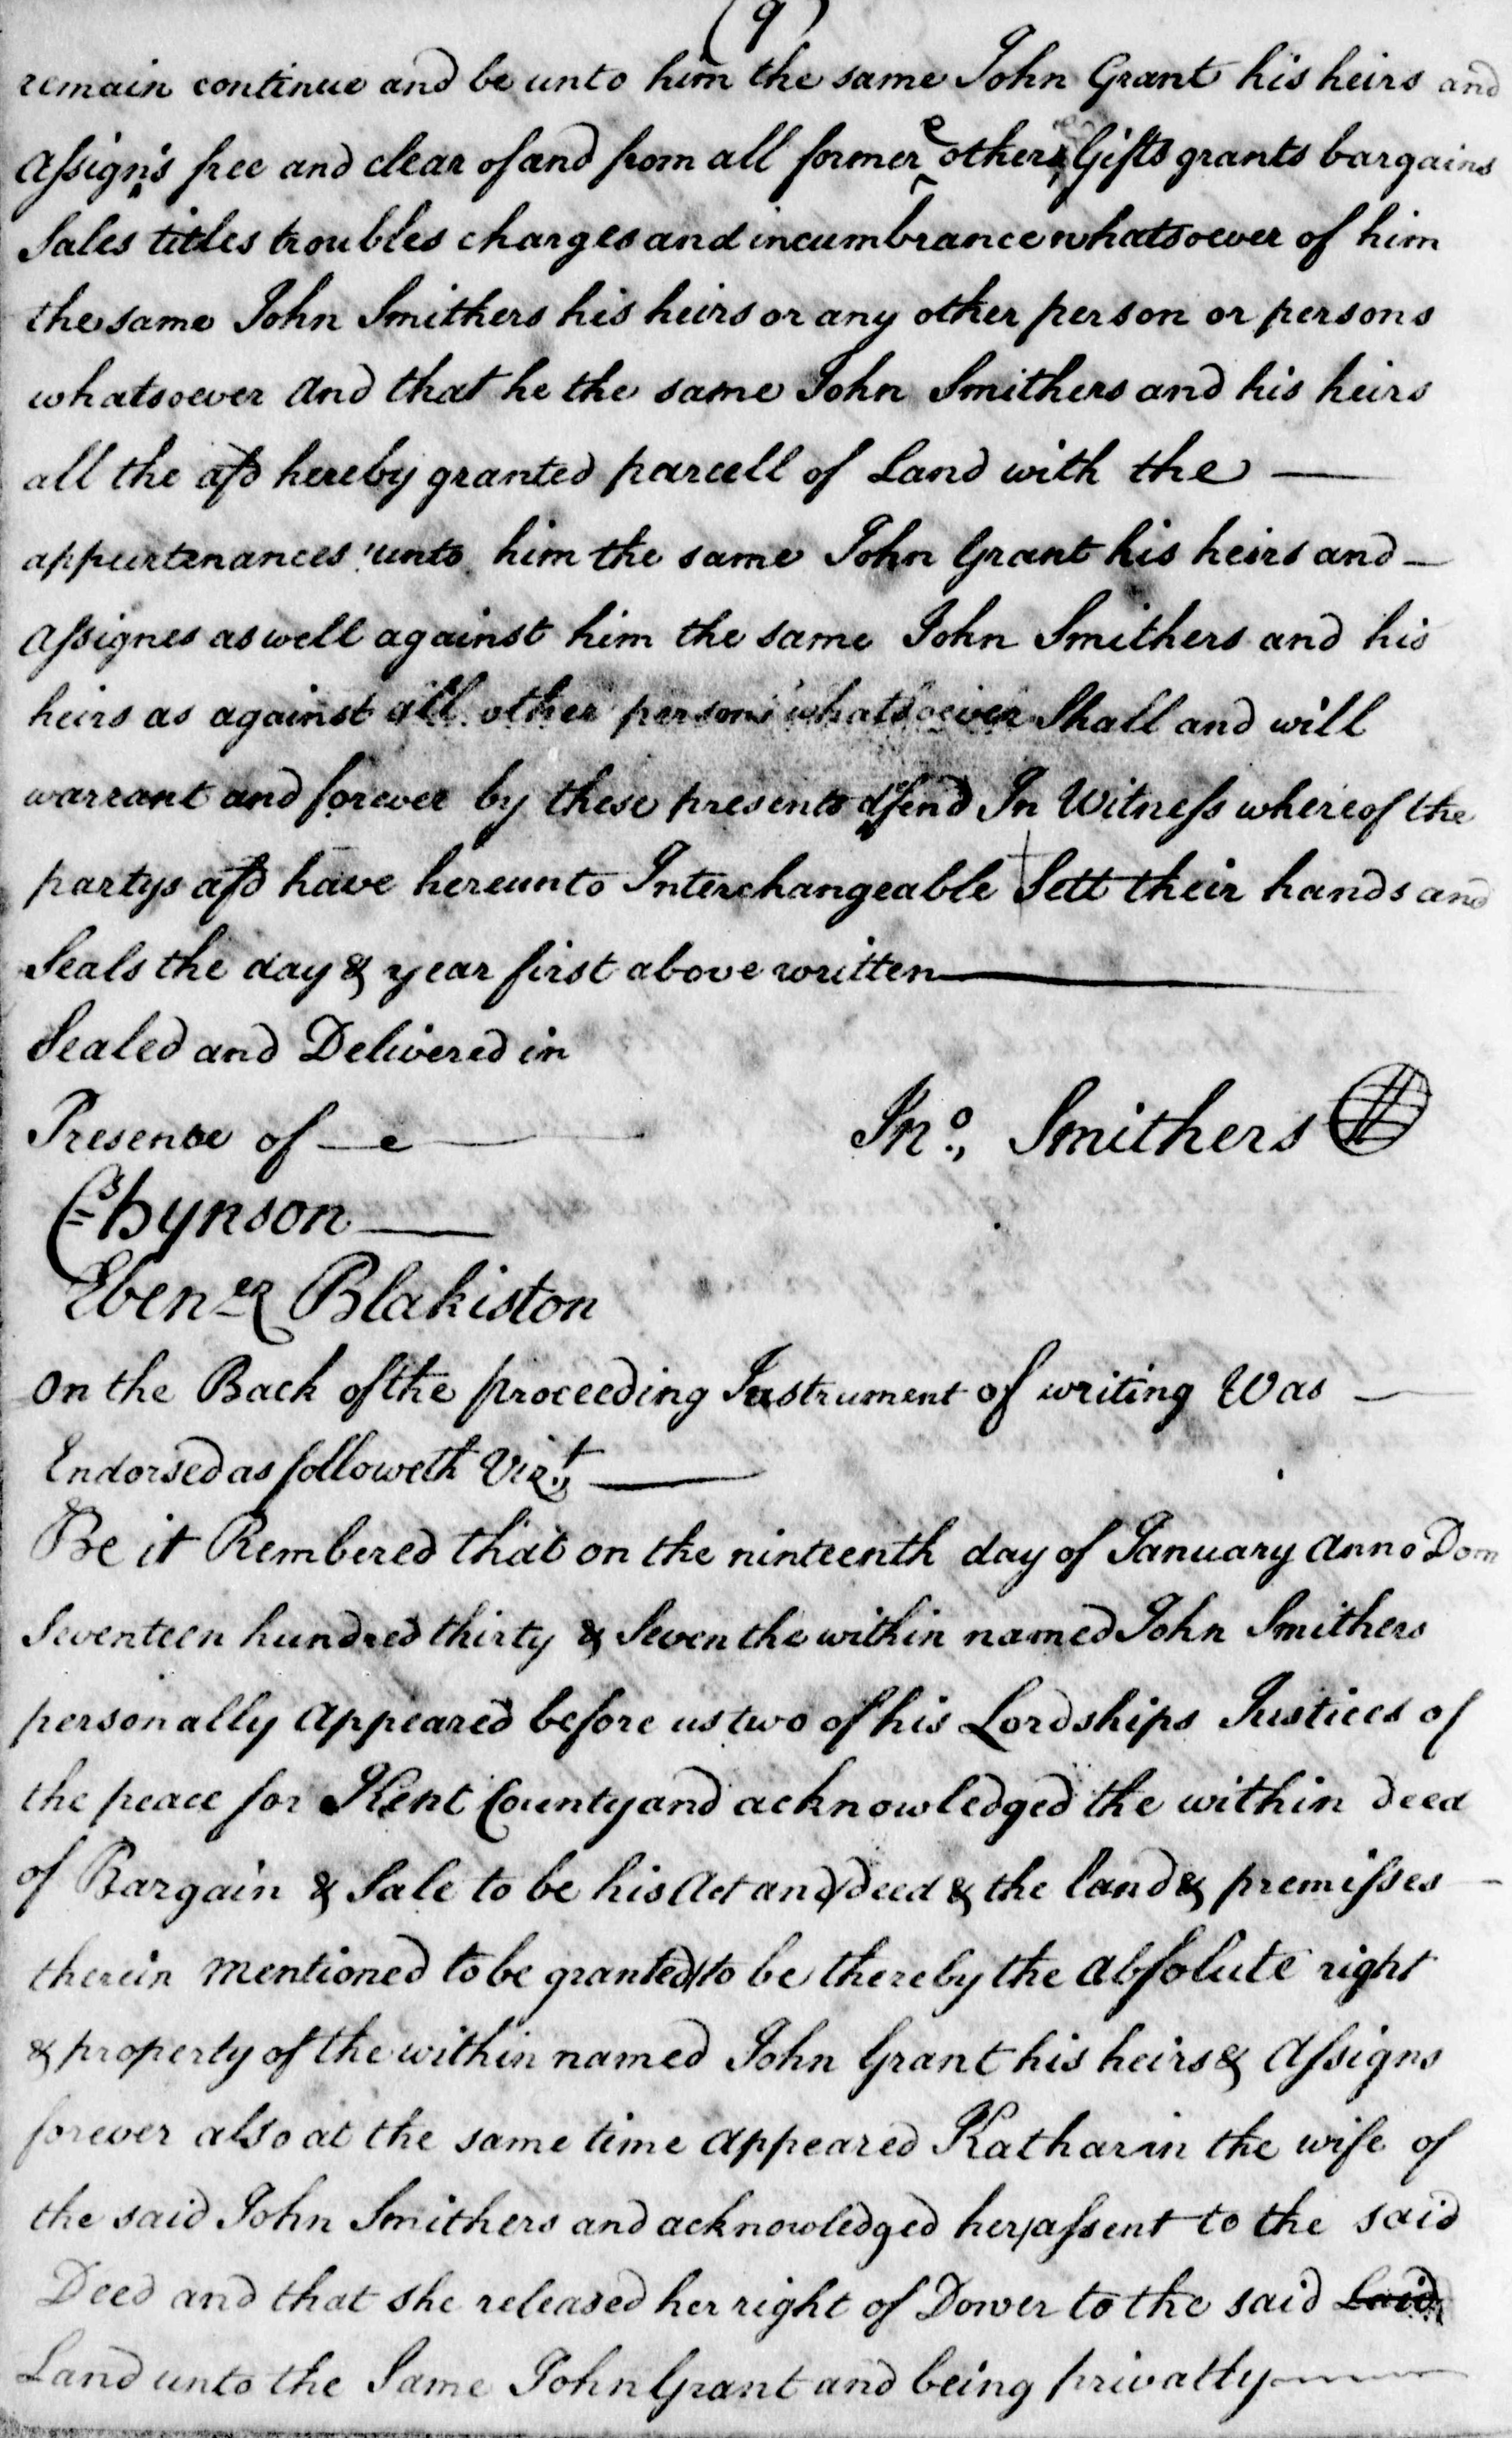 (9)
remain continue and be unto him the same John Grant his heirs and
Assigns free and clear of and from all former & other Gifts grants bargains
Sales titles troubles charges and incumbrance whatsoever of him
the same John Smithers his heirs or any other person or persons
whatsoever And that he the same John Smithers and his heirs
all the afsd hereby granted parcell of Land with the —
appurtenances unto him the same John Grant his heirs and —
Assignes as well against him the same John Smithers and his
heirs as against all other persons whatsoever Shall and will
warrant and forever by these presents defend In Witness whereof the
partys afsd have hereunto Interchangeable Sett their hands and
Seals the day & year first above written —
Sealed and Delivered in
Presence of —
Jno. Smithers
Hynson —
Ebener Blakiston
On the Back of the proceeding Instrument of writing Was —
Endorsed as followeth Vizt —
Be it Rembered that on the ninteenth day of January Anno Dom
Seventeen hundred thirty & Seven the within named John Smithers
personally Appeared before us two of his Lordships Justices of
the peace for Kent County and acknowledged the within deed
of Bargain & Sale to be his Act and deed & the land & premisses —
therein mentioned to be granted to be thereby the Absolute right
& property of the within named John Grant his heirs & Assigns
forever also at the same time Appeared Katharin the wife of
the said John Smithers and acknowledged her assent to the said
Deed and that she released her right of Dower to the said Laid
Land unto the Same John Grant and being privatly —